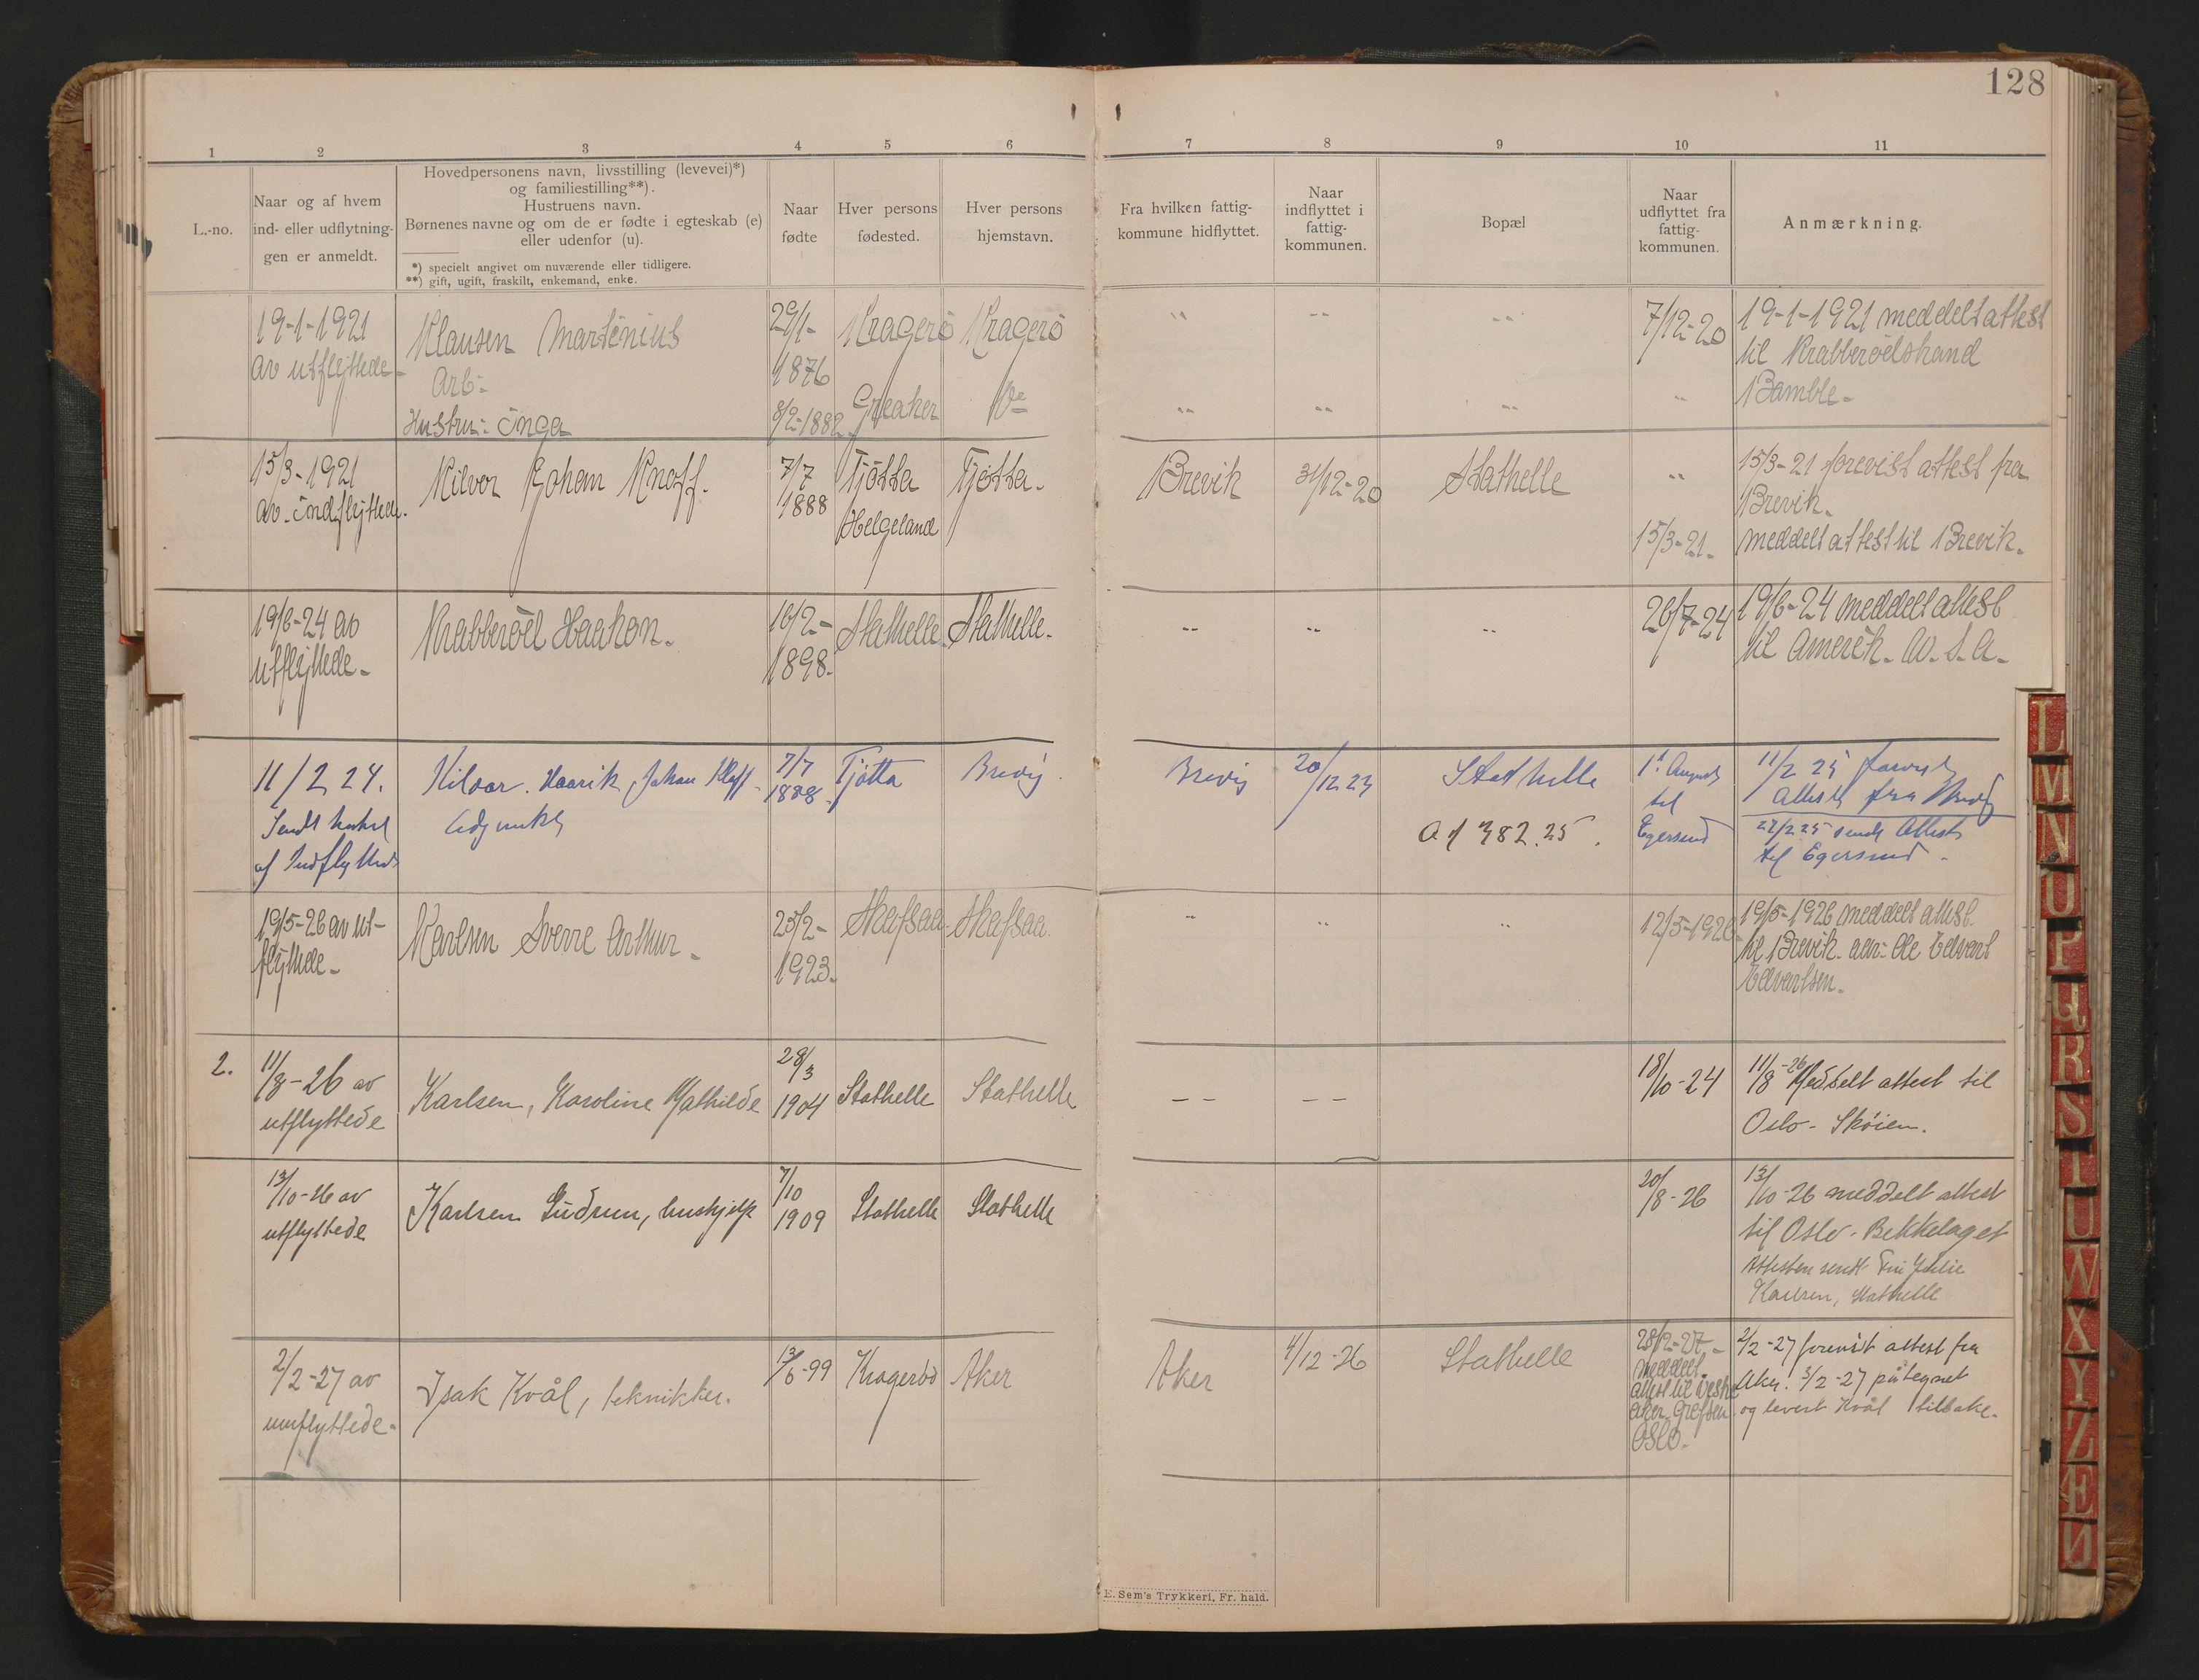 128
1 2 3 4 5 6 7 8 9 10 11
L.-no.
Naar og af hvem
ind- eller udflytnin-
gen er anmeldt.
Hovedpersonens navn, livsstilling (levevei)*)
og familiestilling**).
Hustruens navn.
Børnenes navne og om de er fødte i egteskab (e)
eller udenfor (u).
*) specielt angivet om nuværende eller tidligere.
**) gift, ugift, fraskilt, enkemand, enke.
Naar
fødte
Hver persons
fødested.
Hver persons
hjemstavn.
Fra hvilken fattig-
kommune hidflyttet.
Naar
indflyttet i
fattig-
kommunen.
Bopæl
Naar
udflyttet fra
fattig-
kommunen.
Anmærkning.
19-1-1921
av utflyttede-
Klausen Martinius
Arb-
Hustru: Inga
29/1-
1876
8/2-1882
Kragerö
Greaker
Kragerö
De
7/12-20
19-1-1921 meddelt attest
til Krabberödstrand
Bamble-
15/3-1921
av indflyttede.
Kilvor Johan Knoff.
7/7
1888
Tjötta
Helgeland
Tjötta-
Brevik
31/12-20
Stathelle
15/3-21-
15/3-21 forevist attest fra
Brevik-
meddelt attest til Brevik-
19/6-24 av
utflyttede-
Krabberöd Haakon-
16/2-
1898-
Stathelle
Stathelle-
26/7-24
19/6-24 meddelt attest
til Amerik. U. S. A-
11/2 24.
af Indflyttede
Johan
7/7
1888
Tjøtta
Brevig
Brevig
20/12 23
Stathelle
Af 382.25.
1st August
til
Egersund
11/2 25
Attest fra Brevig
27/2 25 sendt Attest
til Egersund-
19/5-26 av ut-
flyttede-
Karlsen Sverre Arthur-
23/2-
1923-
Skafsaa
Skafsaa.
12/5-1926
19/5-1926 meddelt attest
til Brevik. adr: Ole Edvart
Edvartsen-
2.
11/8-26 av
utflyttede
Karlsen, Karoline Mathilde
28/3
1904
Stathelle
Stathelle
18/10-24
11/8-26 Meddelt attest til
Oslo - Skøien.
13/10-26 av
utflyttede
Karlsen Gudrun, hushjelp
7/10
1909
Stathelle
Stathelle
20/8-26
13/10-26 meddelt attest
til Oslo-Bekkelaget
Attesten sendt Fru Julie
Karlsen, Stathelle
2/2-27 av
innflyttede-
Isak Kvål, tekniker.
13/6-99
Kragerö
Aker
Aker
4/12-26
Stathelle
28/2-27-
meddelt
attest til Vestre
Aker Grefsen
Oslo-
2/2-27 forevist attest fra
Aker. 3/2-27 påtegnet
og levert Kvål tilbake.
E. Sem's Trykkeri, Fr. hald.
L
M
N
O
P
Q
R
S
T
U
W
X
Y
Z
Æ
Ø